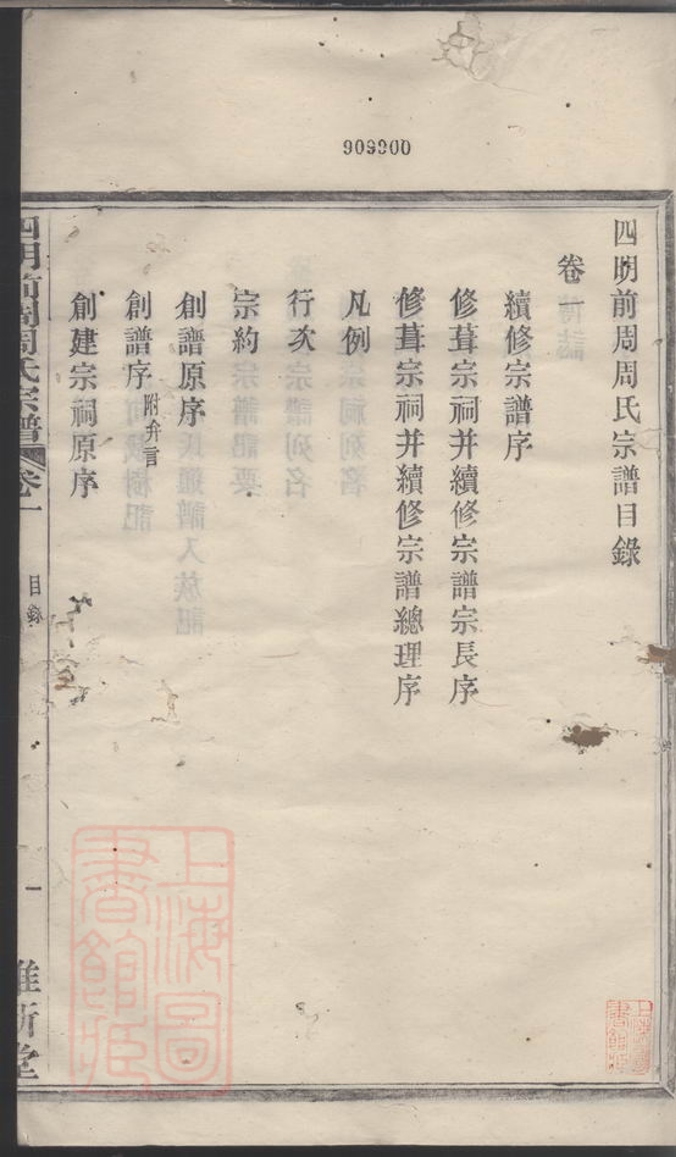 909300
四明前周周氏宗譜目錄
卷一
續修宗譜序
修葺宗祠并續修宗譜宗長序
修葺宗祠并續修宗譜總理序
凡例
行次
宗約
創譜原序
創譜序 附弁言
創建宗祠原序
四明前周周氏宗譜 卷一 目錄 一 維新堂
上海圖書館藏
上海圖書館藏